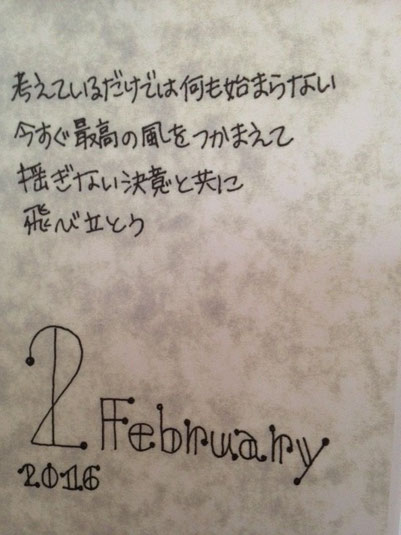 考えているだけでは何も始まらない
今すぐ最高の風をつかまえて
揺ぎない決意と共に
飛び立とう
2 February
2016